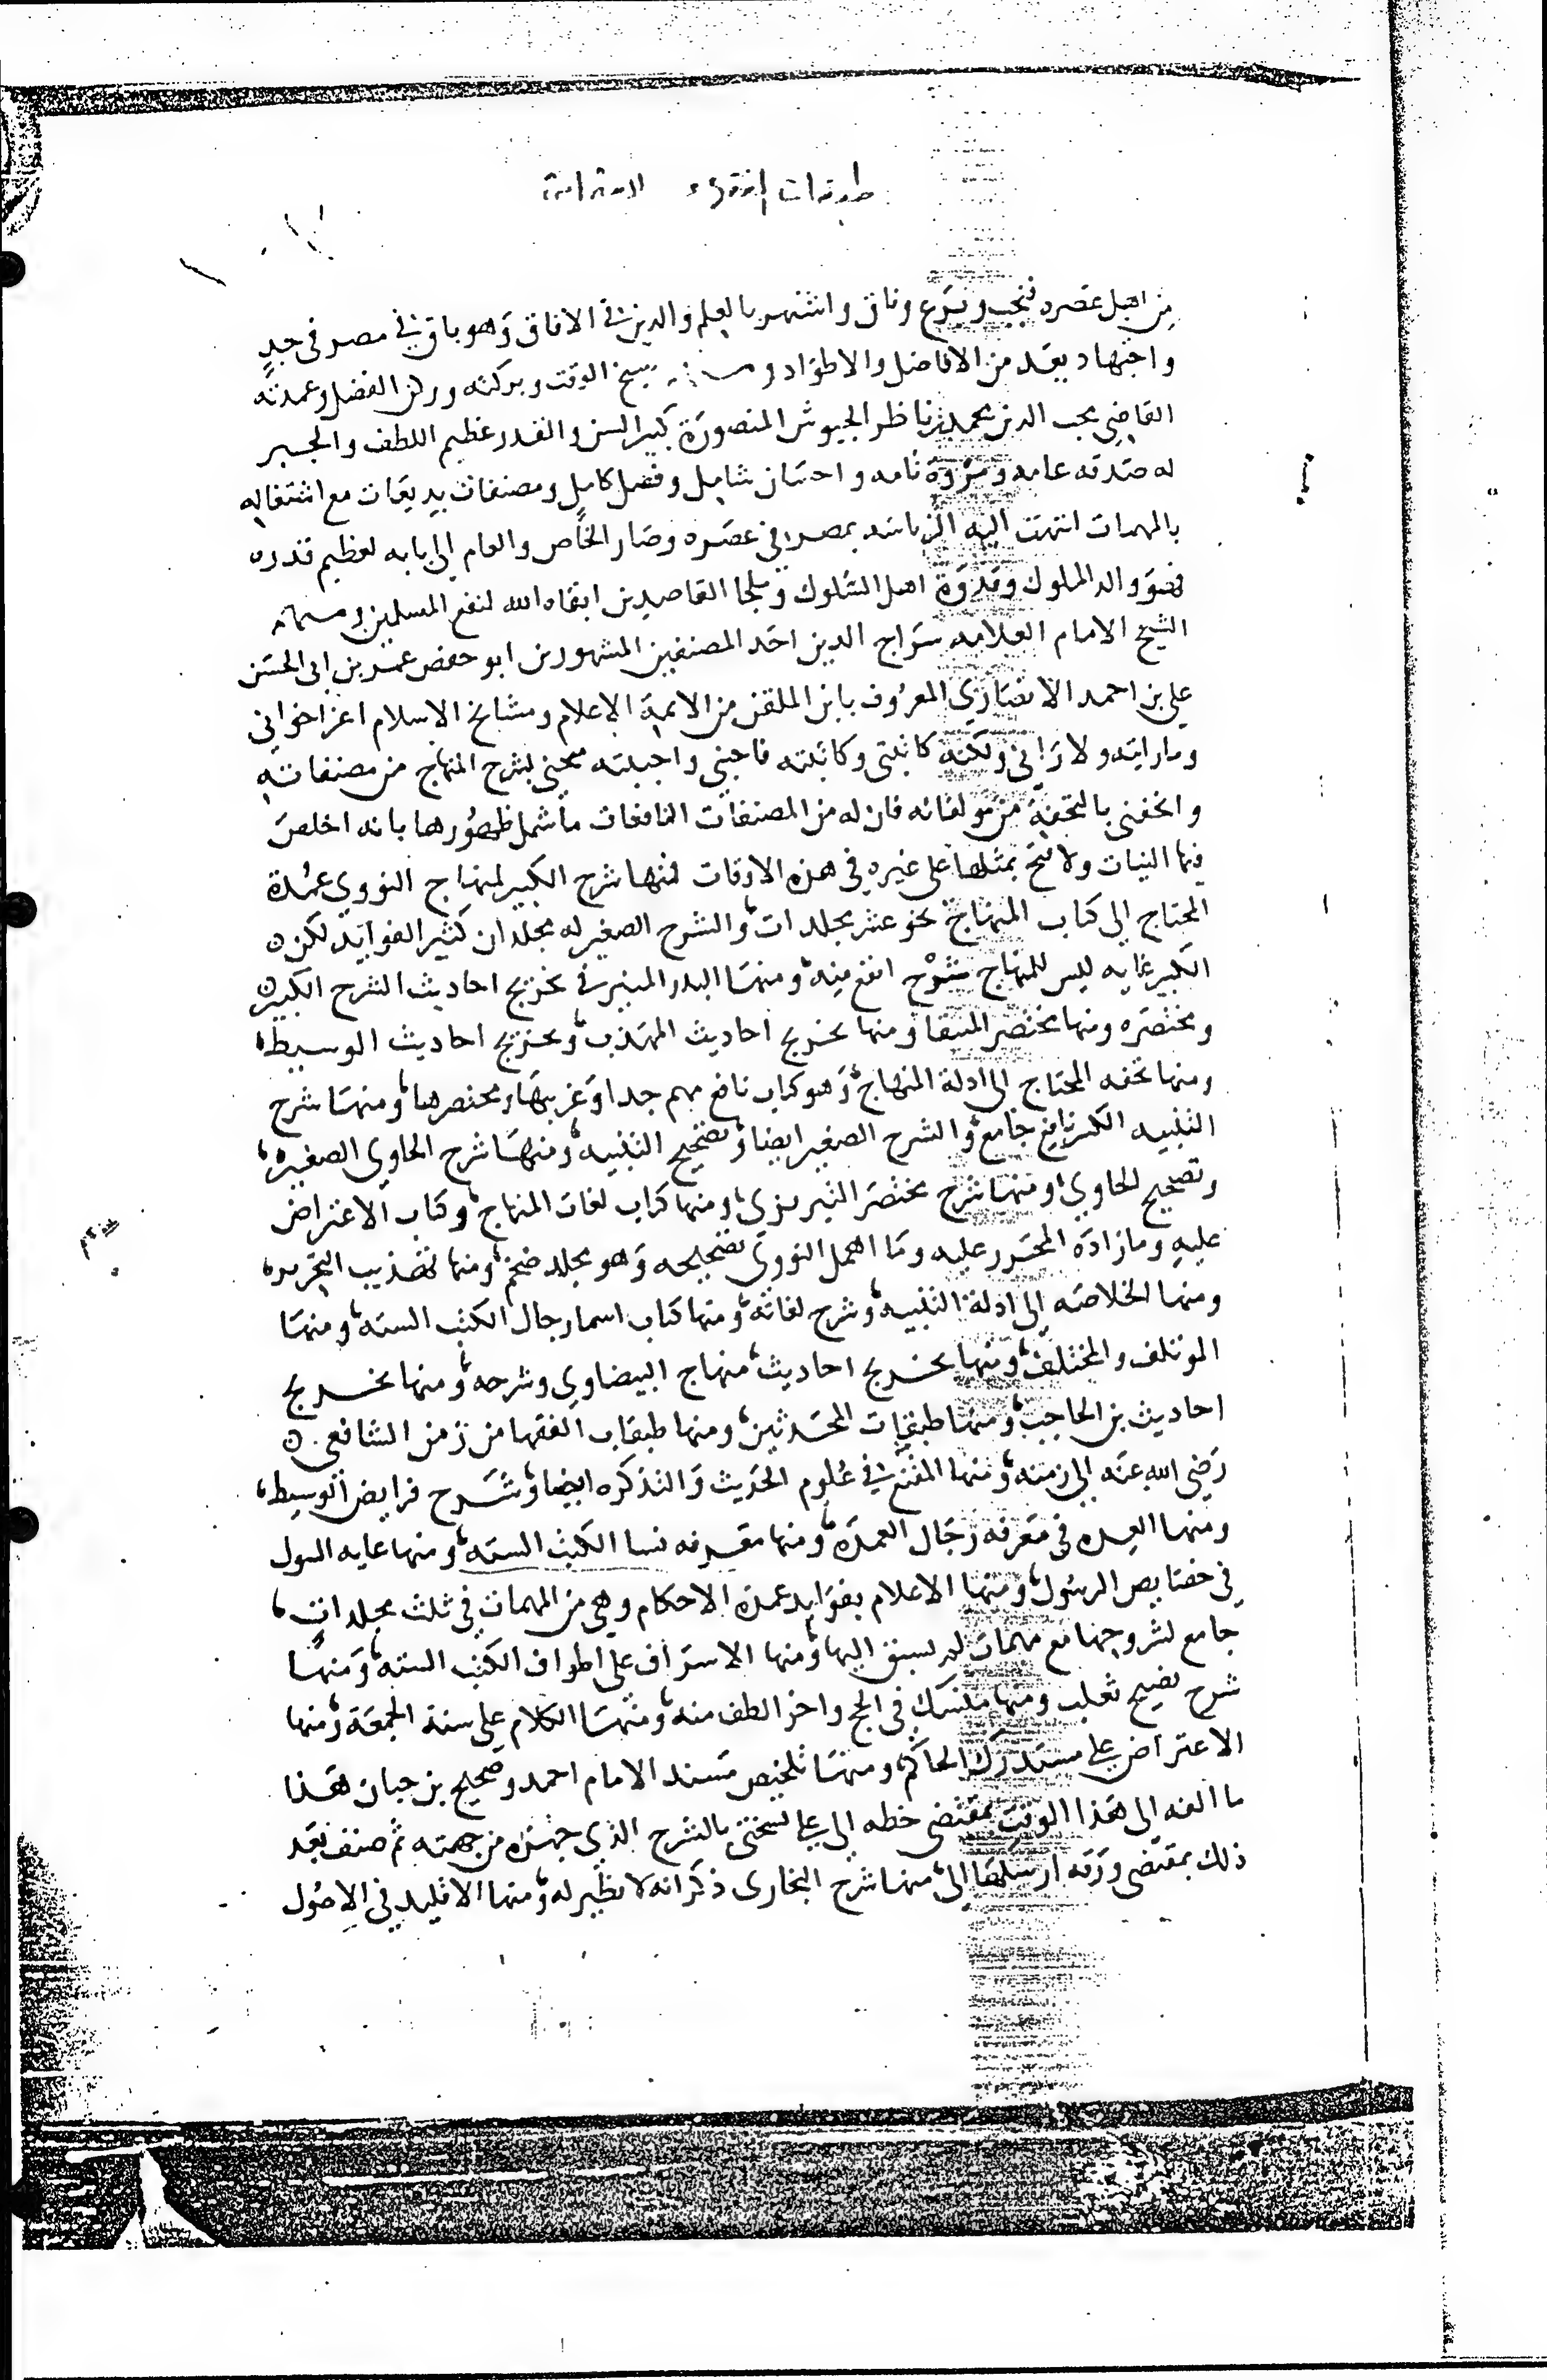 طبقات الفقهاء العثمانية
من اهل عصره فنجب وبرع وفاق واشتهر بالعلم والدين في الافاق وهو باق في مصر في جد
واجتهاد يعد من الافاضل والاطواد شيخ الوقت وبركته وركن الفضل وعمدته
القاضي محب الدين محمد ناظر الجيوش المنصورة كبير السن والقدر عظيم اللطف والجبر
له صدقه عامه ومروة تامه واحسان شامل وفضل كامل ومصنفات بديعات مع اشتغاله
بالمهمات انتهت اليه الرياسه بمصر في عصره وصار الخاص والعام الى بابه لعظيم قدره
فهو والد الملوك وقدوة اهل السلوك وملجا القاصدين ابقاه الله لنفع المسلمين ومنهم
الشيخ الامام العلامه سراج الدين احد المصنفين المشهورين ابو حفص عمر بن ابى الحسن
علي بن احمد الانصاري المعروف بابن الملقن من الايمة الاعلام ومشايخ الاسلام اعز اخواني
وما رايته ولا راني ولكنه كاتبتى وكاتبته فاحبني واحببته محنى بشرح المنهاج من مصنفاته
واتحفني بالتحفة من مولفاته فان له من المصنفات النافعات ما شمل ظهورها بانه اخلص
فيها النيات ولا فتح بمثلها على غيره في هذه الاوقات فمنها شرح الكبير لمنهاج النووي عمدة
المحتاج الى كتاب المنهاج نحو عشر مجلدات والشرح الصغير له مجلدان كثير الفوايد لكن
الكبير غايه ليس للمنهاج شرح انفع منه ومنها البدر المنير في تخريج احاديث الشرح الكبير
ومختصره ومنها مختصر المنتقا ومنها تخريج احاديث المهذب وتخريج احاديث الوسيط
ومنها تحفه المحتاج الى ادلة المنهاج وهو كتاب نافع مهم جدا وغريبها ومختصرها ومنها شرح
التنبيه الكبير نافع جامع والشرح الصغير ايضا وتصحيح التنبيه ومنها شرح الحاوي الصغير
وتصحيح الحاوي ومنها شرح مختصر التبريزى ومنها كتاب لغات المنهاج وكتاب الاعتراض
عليه وما زاده المحرر عليه وما اهمل النووي تصحيحه وهو مجلد ضخم ومنها تهذيب التحرير
ومنها الخلاصه الى ادلة التنبيه وشرح لغاته ومنها كتاب اسما رجال الكتب السته ومنها
الموتلف والمختلف ومنها تخريج احاديث منهاج البيضاوي وشرحه ومنها تخريج
احاديث بن الحاجب ومنها طبقات المحدثين ومنها طبقات الفقها من زمن الشافعى
رضي الله عنه الى زمنه ومنها المقنع في علوم الحديث والتذكره ايضا وشرح فرايض الوسيط
ومنها العده في معرفه رجال العمدة ومنها معرفه نسا الكتب السته ومنها غايه السول
في خصايص الرسول ومنها الاعلام بفوايد عمدة الاحكام وهي من المهمات في ثلث مجلدات
جامع لشروحها مع مهمات لم يسبق اليها ومنها الاشراف على اطراف الكتب السته ومنها
شرح فصيح ثعلب ومنها منسك في الحج واخر الطف منه ومنها الكلام على سنة الجمعة ومنها
الاعتراض على مستدرك الحاكم ومنها تلخيص مسند الامام احمد وصحيح بن حبان هذا
ما الفه الى هذا الوقت بمقتضى خطه الي على نسختى بالشرح الذي جهزه من جهته ثم صنف بعد
ذلك بمقتضى ورقه ارسلها الى منها شرح البخارى ذكر انه لا نظير له ومنها الاقليد في الاصول